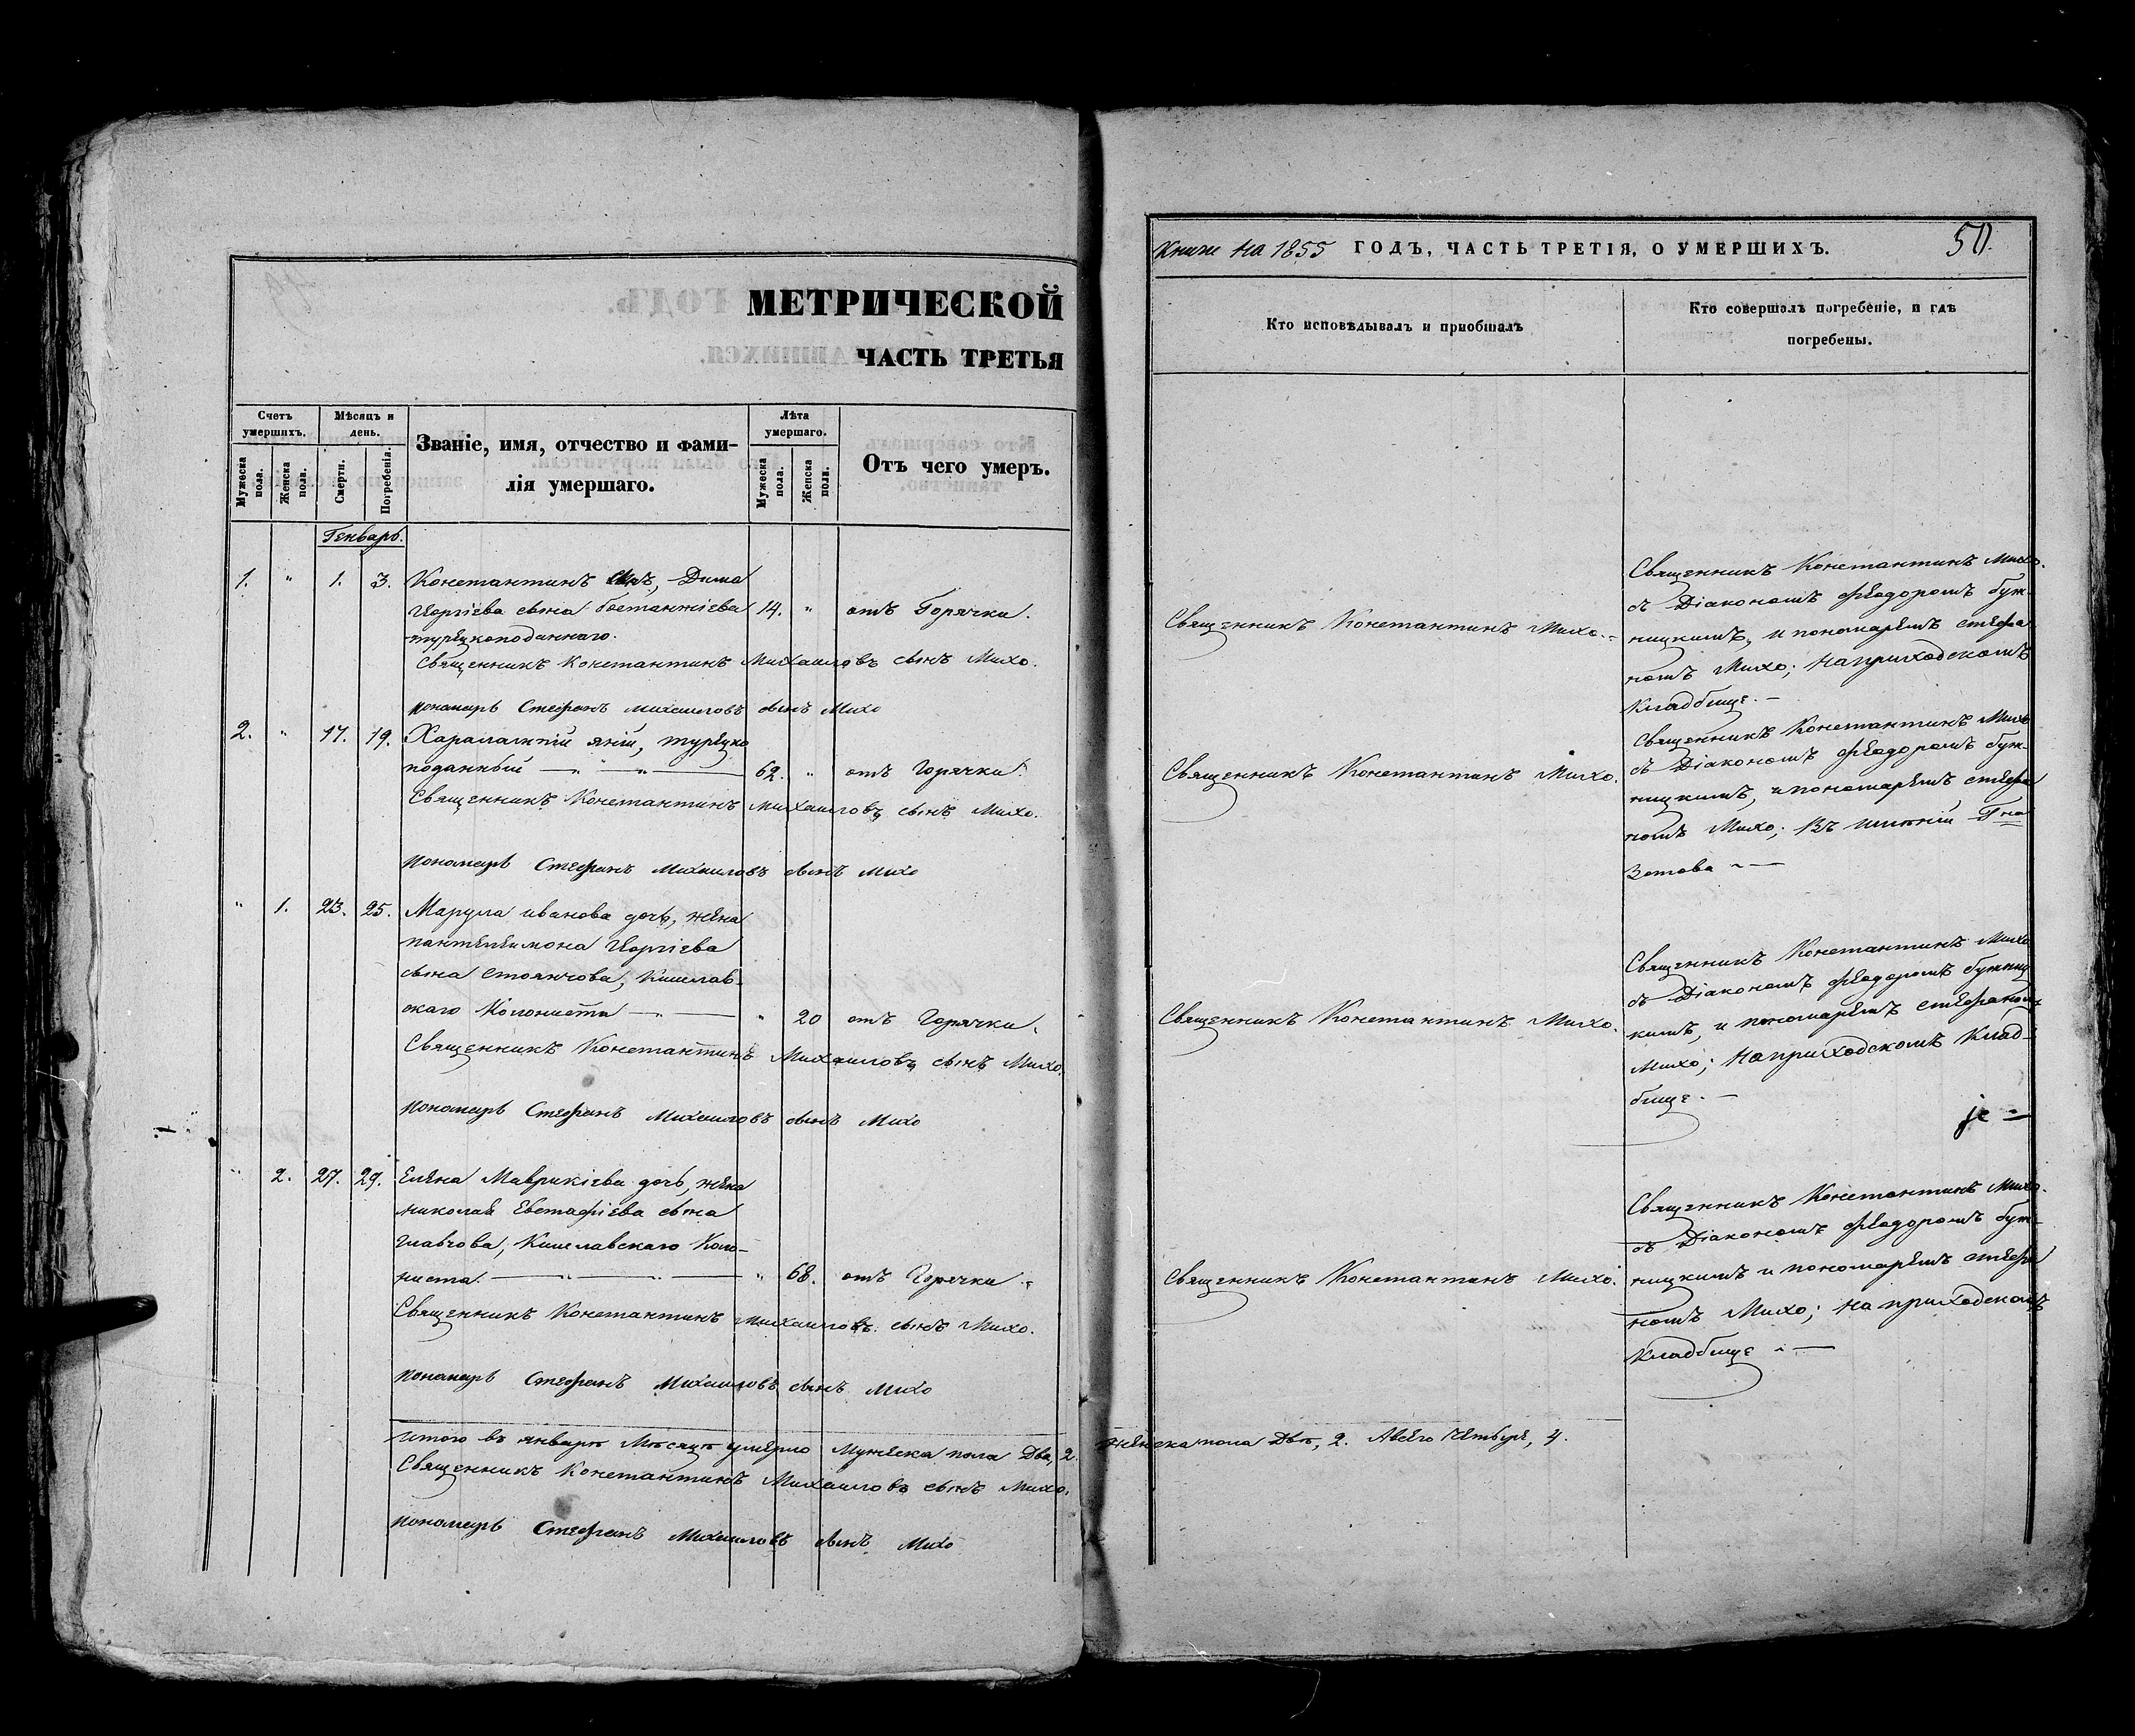 МЕТРИЧЕСКОЙ
ЧАСТЬ ТРЕТЬЯ
Счетъ умершихъ.
Мѣсяцъ и день.
Званіе, имя, отчество и фами-
лія умершаго.
Лѣта умершаго.
Отъ чего умеръ.
Мужеска пола.
Женска пола.
Смерти.
Погребенія.
Мужеска пола.
Женска пола.
Генварь.
1. " 1. 3. Константинъ сынъ, Дима
Георгіева сына Бостанжіева 14. " отъ Горячки.
турецкоподаннаго.
Священникъ Константинъ Михаиловъ сынъ Михо.
Пономарь Стефанъ Михаиловъ сынъ Михо
2. " 17. 19. Харалампій Яній, турецко
поданный — " — " — 62. " отъ Горячки.
Священникъ Константинъ Михаиловъ сынъ Михо.
Пономарь Стефанъ Михаиловъ сынъ Михо
" 1. 23. 25. Марула иванова дочь, жена
пантелеимона Георгіева
сына Стоянчова, Кишлав-
скаго Колониста — " — " 20 отъ Горячки.
Священникъ Константинъ Михаиловъ сынъ Михо.
Пономарь Стефанъ Михаиловъ сынъ Михо
" 2. 27. 29. Елена Маврикіева дочь, жена
николая Евстафіева сына
Главчова, Кишлавскаго Коло-
ниста. — " — " — " 68. отъ Горячки.
Священникъ Константинъ Михаиловъ сынъ Михо.
Пономарь Стефанъ Михаиловъ сынъ Михо
Итого въ январѣ Мѣсяцѣ умерло Мужеска пола Два, 2.
Священникъ Константинъ Михаиловъ сынъ Михо.
Пономарь Стефанъ Михаиловъ сынъ Михо
Книги на 1855 ГОДЪ, ЧАСТЬ ТРЕТІЯ, О УМЕРШИХЪ. 50.
Кто исповѣдывалъ и приобщалъ
Кто совершалъ погребеніе, и гдѣ
погребены.
Священникъ Константинъ Михо.
Священникъ Константинъ Михо.
съ Діакономъ Феодоромъ Буж-
ницкимъ, и пономаремъ стефа
номъ Михо; на приходскомъ
Кладбище. —
Священникъ Константинъ Михо.
Священникъ Константинъ Михо
съ Діакономъ Феодоромъ Буж-
ницкимъ, и пономаремъ стефа
номъ Михо; въ имѣніи Гна
Зотова — —
Священникъ Константинъ Михо.
Священникъ Константинъ Михо
съ Діакономъ Феодоромъ Бужниц
кимъ, и пономаремъ стефаномъ
Михо; на приходскомъ Клад-
бище. —
Священникъ Константинъ Михо.
Священникъ Константинъ Михо.
съ Діакономъ Феодоромъ Буж-
ницкимъ и пономаремъ стефа
номъ Михо; на приходскомъ
Кладбище — —
женска пола Двѣ, 2. А всего Четыре, 4.